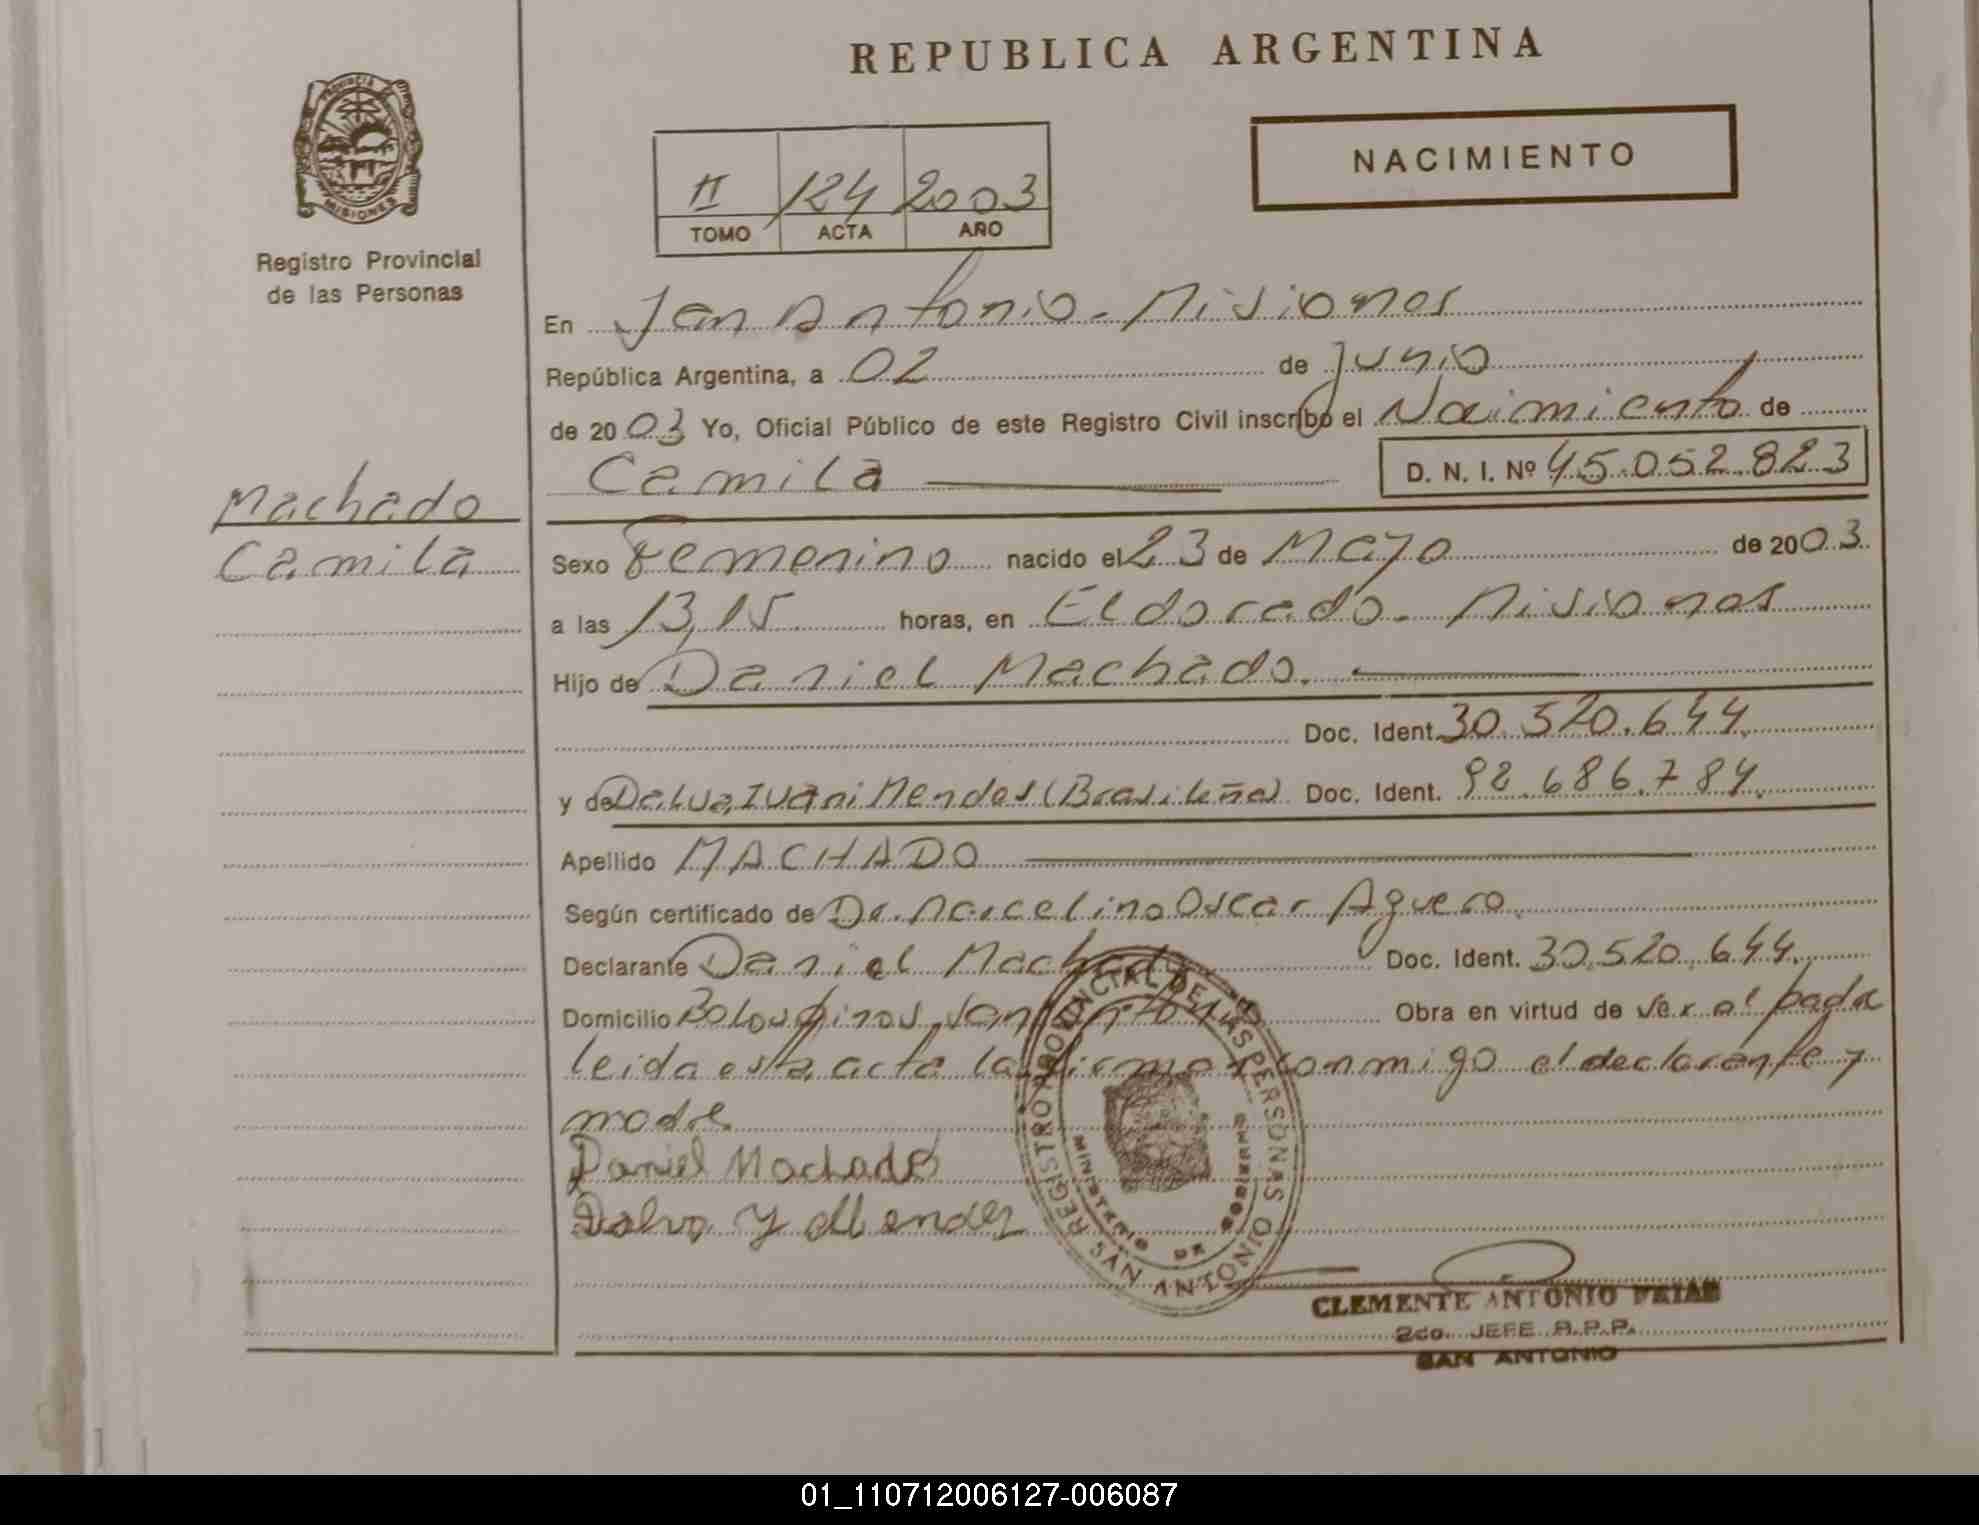 REPUBLICA ARGENTINA
NACIMIENTO
II 124 2003
TOMO ACTA AÑO
PROVINCIA DE
MISIONES
Registro Provincial
de las Personas
Machado
Camila
En San Antonio - Misiones
República Argentina, a 02 de Junio
de 2003 Yo, Oficial Público de este Registro Civil inscribo el Nacimiento de
Camila D. N. I. Nº 45.052.823
Sexo Femenino nacido el 23 de Mayo de 2003
a las 13,15 horas, en Eldorado - Misiones
Hijo de Daniel Machado.
Doc. Ident. 30.520.644.
y de Dalva, Ivani Mendes (Brasileña) Doc. Ident. 92.686.784.
Apellido MACHADO
Según certificado de Dr. Marcelino Oscar Aguero.
Declarante Daniel Machado Doc. Ident. 30.520.644.
Domicilio San Antonio Obra en virtud de ser el padre
leida esta acta la firman conmigo el declarante y
madre
Daniel Machado
Dalva Y Mendez
REGISTRO PROVINCIAL DE LAS PERSONAS
MINISTERIO DE GOBIERNO
SAN ANTONIO
CLEMENTE ANTONIO
2do. JEFE R.P.P.
SAN ANTONIO
01_110712006127-006087